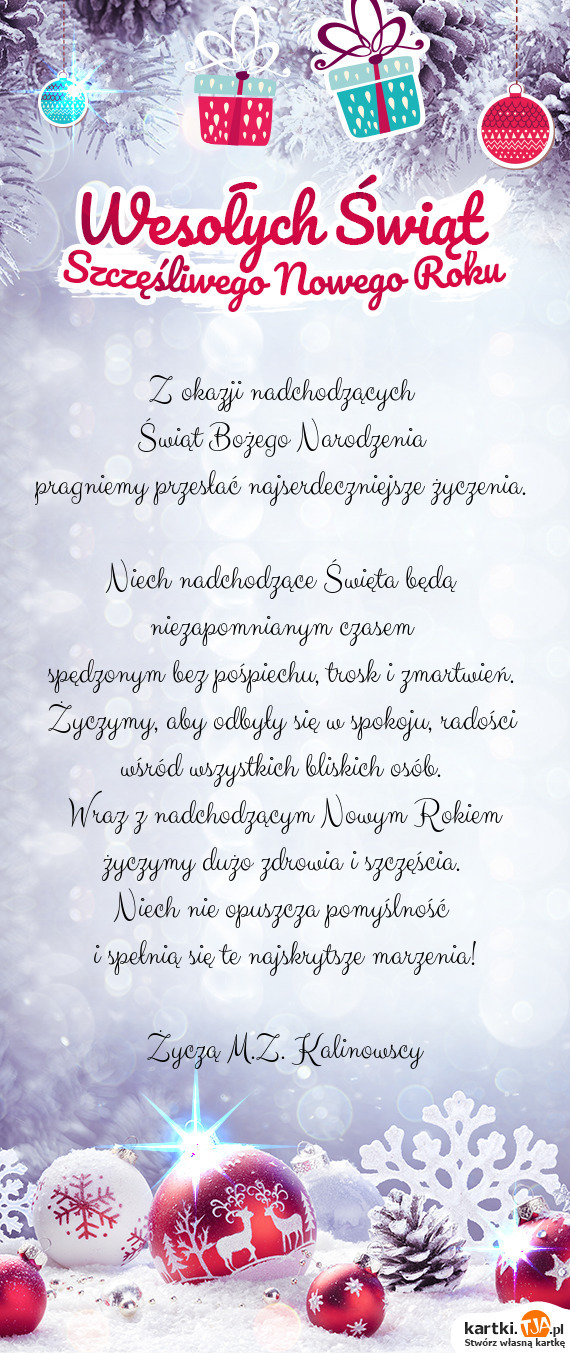 Wesołych Świąt
Szczęśliwego Nowego Roku
Z okazji nadchodzących
Świąt Bożego Narodzenia
pragniemy przesłać najserdeczniejsze życzenia.
Niech nadchodzące Święta będą
niezapomnianym czasem
spędzonym bez pośpiechu, trosk i zmartwień.
Życzymy, aby odbyły się w spokoju, radości
wśród wszystkich bliskich osób.
Wraz z nadchodzącym Nowym Rokiem
życzymy dużo zdrowia i szczęścia.
Niech nie opuszcza pomyślność
i spełnią się te najskrytsze marzenia!
Życzą M.Z. Kalinowscy
kartki.TJA.pl
Stwórz własną kartkę